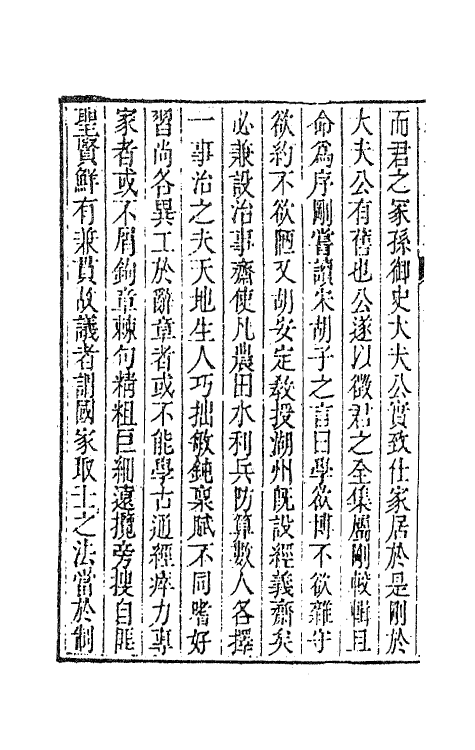 而君之冢孫御史大夫公實致仕家居於是剛於
大夫公有舊也公遂以徵君之全集屬剛較輯且
命爲序剛嘗讀宋胡子之言曰學欲博不欲雜守
欲約不欲陋又胡安定敎授湖州旣設經義齋矣
必兼設治事齋使凡農田水利兵防算數人各擇
一事治之夫天地生人巧拙敏鈍稟賦不同嗜好
習尚各異工於辭章者或不能學古通經瘁力專
家者或不屑鉤章棘句精粗巨細遠攬旁搜自匪
聖賢鮮有兼貫故議者謂國家取士之法當於制